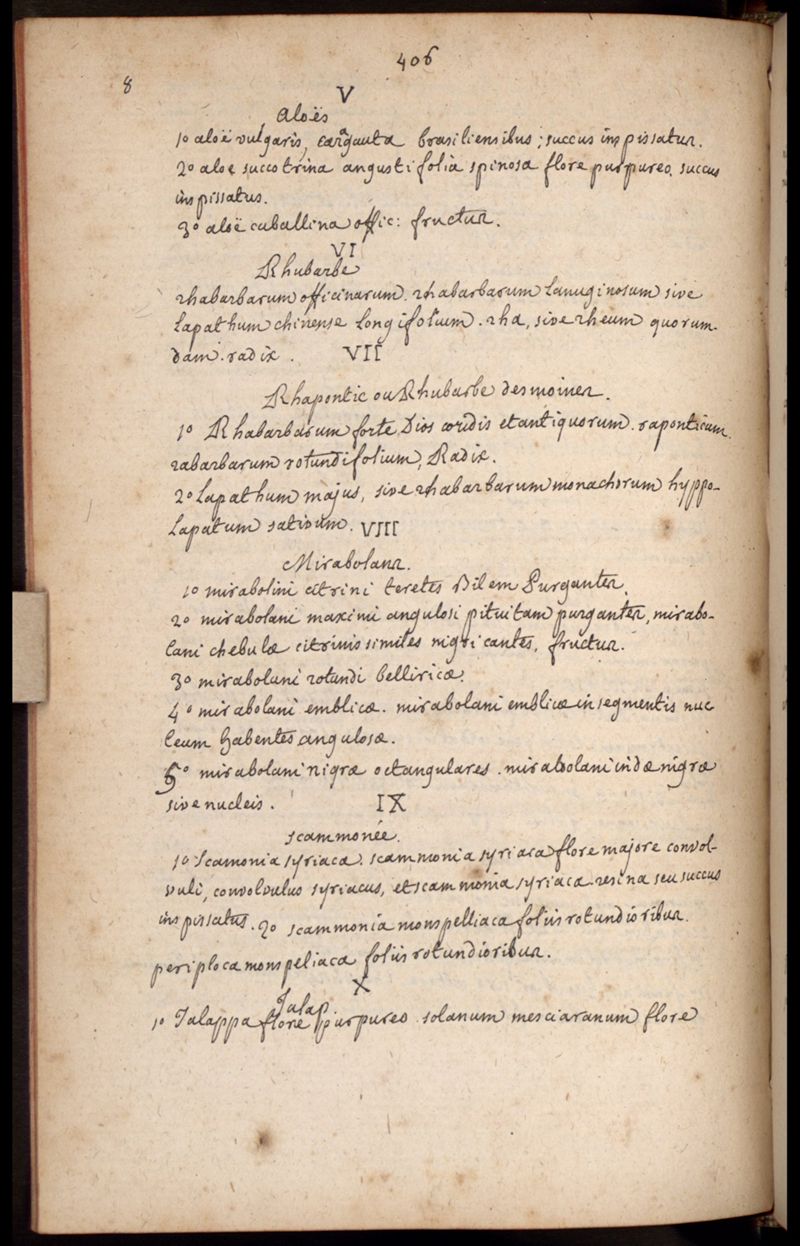 406
8
V
Aloës
1o aloë vulgaris, caragauta brasiliensibus; succus inspissatus.
2o aloe succotrina angustifolia spinosa flore purpureo, succus
inspissatus.
3o aloë caballina offic: fructus.
VI
Rhubarbe
rhabarbarum officinarum. rhabarbarum lanuginosum sive
lapathum chinense longifolium. rha, sive rheum quorum-
dam. radix. VII
Rhapontic ou Rhubarbe des moines.
1o Rhabarbarum forte Dioscoridis et antiquorum. raponticum
rabarbarum rotundifolium, Radix.
2o Lapathum majus, sive rhabarbarum monachorum hyppo-
lapatum sativum. VIII
Mirabolans.
1o mirabolini citrini teretes Bilem Purgantes,
2o mirabolani maximi angulosi pituitam purgantes, mirabo-
lani chebulæ citrinis similes nigricantes, fructus.
3o mirabolani rotundi belliricæ.
4o mirabolani emblicæ. mirabolani emblicæ in segmentis nuc
leum habentes angulosæ.
5o mirabolani nigræ octangulares. mirabolani indæ nigræ
sive nucleis. IX
scammonée.
1o Scamonia syriaca. scammonia syriaca flore majore convol-
vuli, convolvulus syriacus, et scammonia syriaca. resina seu succus
inspissatus. 2o scammonia monspelliaca foliis rotundioribus.
periploca monspeliaca foliis rotundioribus.
X
Jalap
1o Jalappa flore purpureo. solanum mesciaranum flore